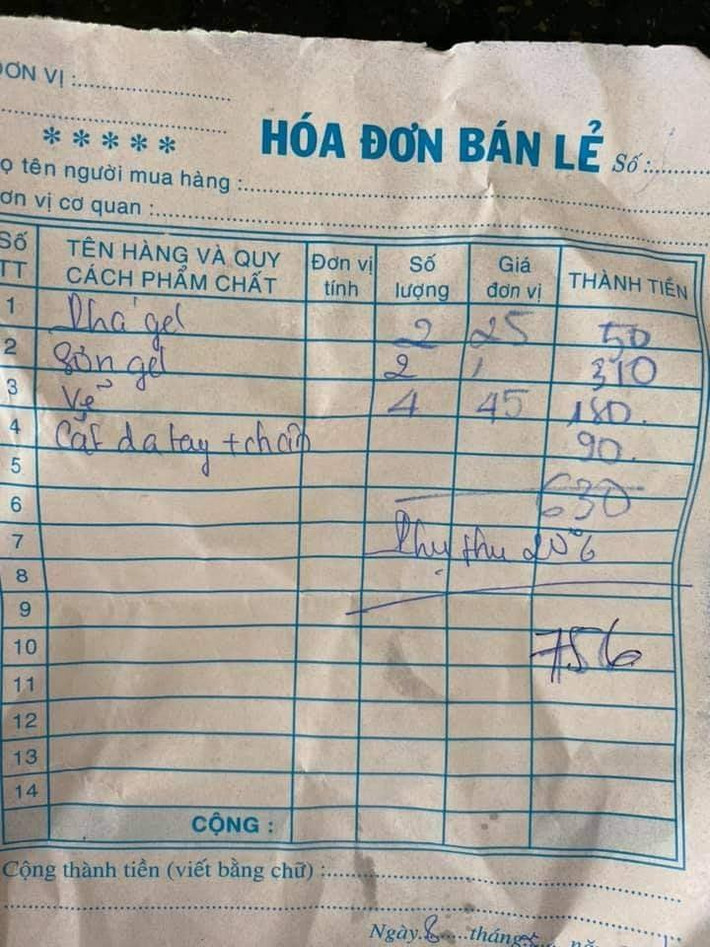 ĐƠN VỊ :
***** HÓA ĐƠN BÁN LẺ Số :
ọ tên người mua hàng :
ơn vị cơ quan :
Số TT TÊN HÀNG VÀ QUY CÁCH PHẨM CHẤT Đơn vị tính Số lượng Giá đơn vị THÀNH TIỀN
1 Phá gel 2 25 50
2 Sơn gel 2 310
3 Vẽ 4 45 180
4 Cắt da tay + chân 90
5 630
6
7 Phụ thu 20%
8
9
10 756
11
12
13
14
CỘNG :
Cộng thành tiền (viết bằng chữ) :
Ngày 8 tháng